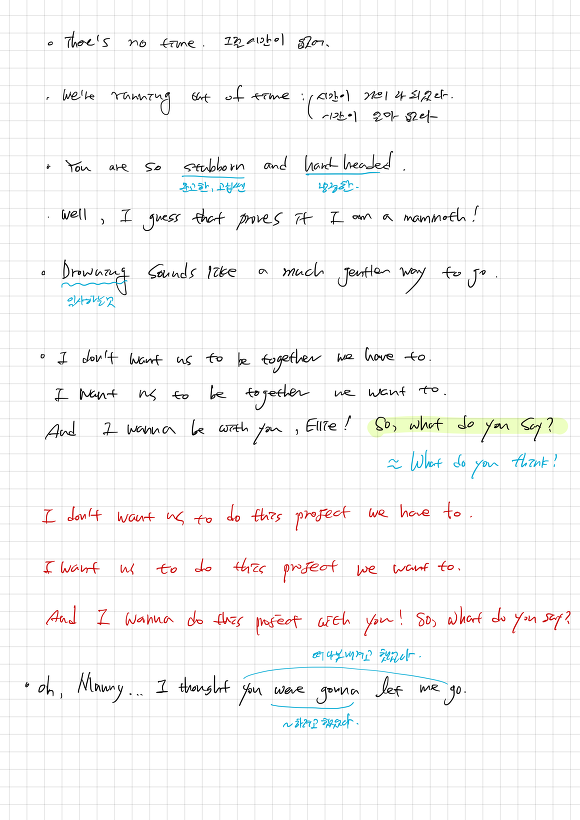 • There's no time. 그럴 시간이 없어.
. We're running out of time : ( 시간이 거의 다 되었다.
시간이 얼마 없다
• You are so stubborn and hard headed.
완고한, 고집센 냉정한.
. Well, I guess that proves it I am a mammoth!
• Drowning sounds like a much gentler way to go.
익사하는것
• I don't want us to be together we have to.
I want us to be together we want to.
And I wanna be with you, Ellie! So, what do you say?
≈ What do you think?
I don't want us to do this project we have to.
I want us to do this project we want to.
And I wanna do this poject with you! So, what do you say?
떠나보내려고 했었다.
• Oh, Manny... I thought you were gonna let me go.
~하려고 했었다.